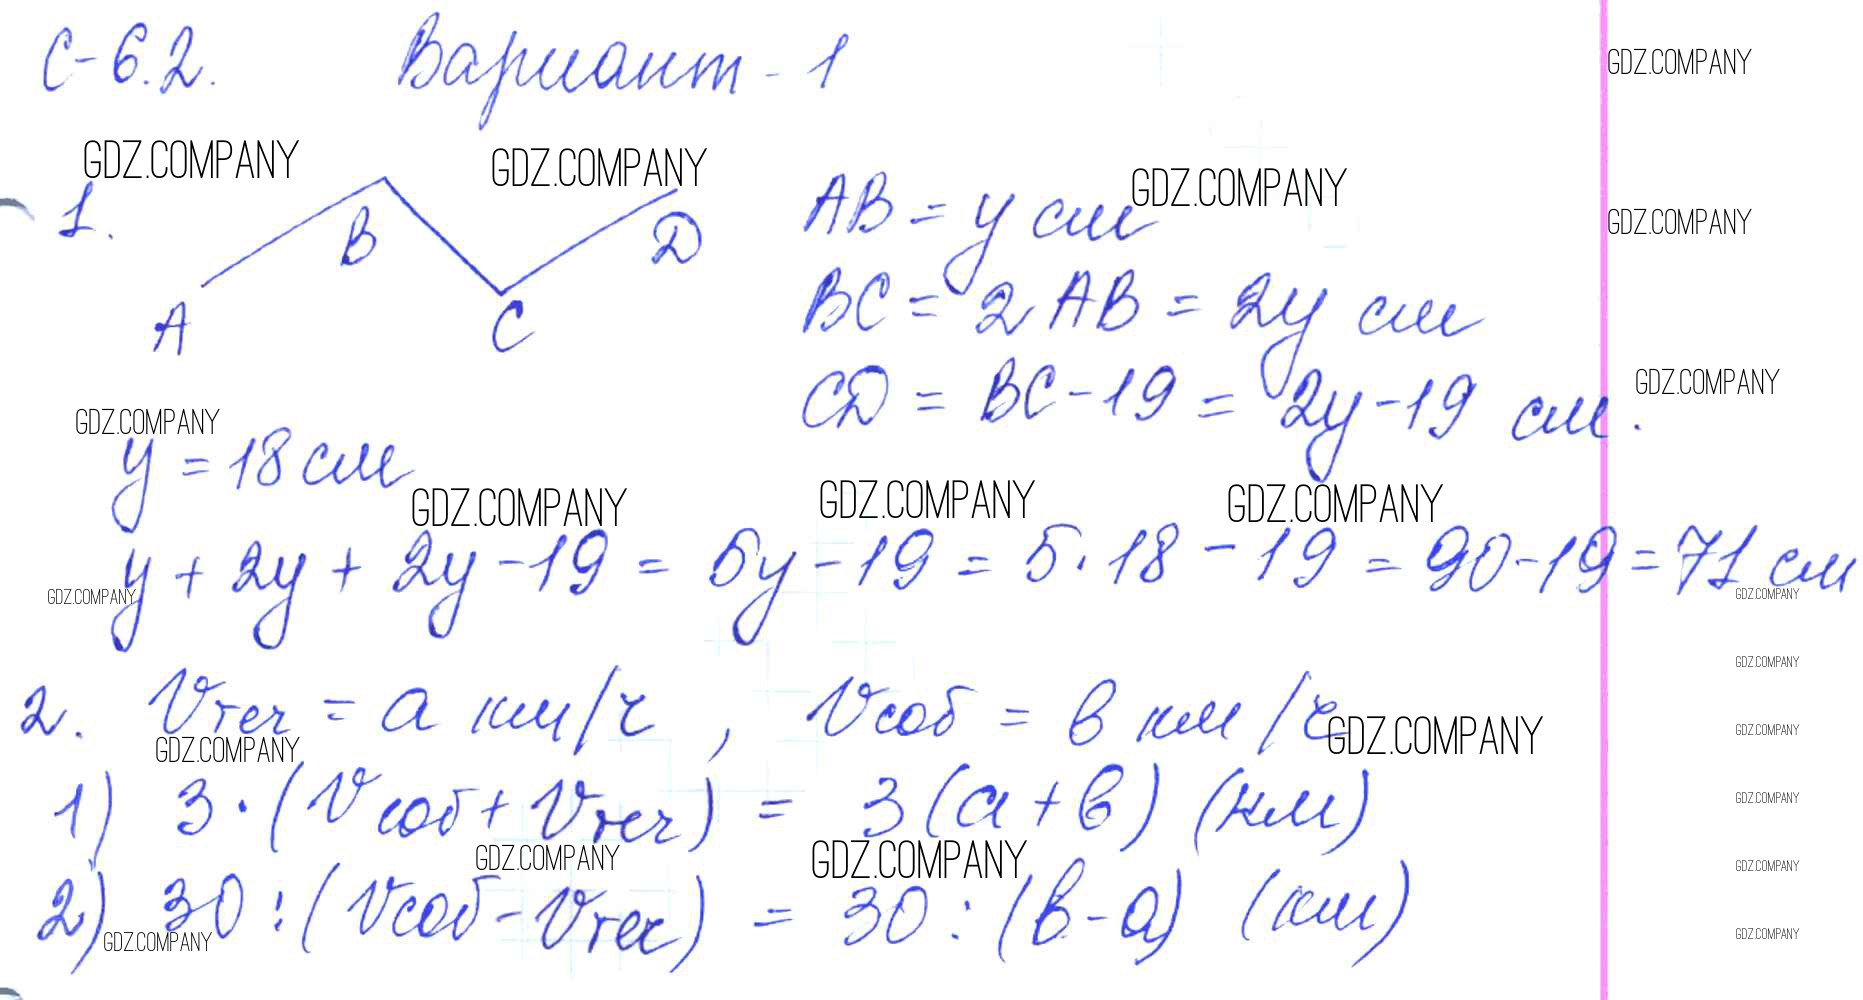 С-6.2. Вариант - 1
GDZ.COMPANY
GDZ.COMPANY GDZ.COMPANY GDZ.COMPANY
1. A B C D
AB = y см
GDZ.COMPANY
BC = 2 AB = 2y см
CD = BC - 19 = 2y - 19 см.
GDZ.COMPANY
GDZ.COMPANY
y = 18 см
GDZ.COMPANY GDZ.COMPANY GDZ.COMPANY
y + 2y + 2y - 19 = 5y - 19 = 5 · 18 - 19 = 90 - 19 = 71 см
GDZ.COMPANY GDZ.COMPANY
GDZ.COMPANY
2. Vтеч = a км/ч , Vсоб = в км/ч
GDZ.COMPANY GDZ.COMPANY GDZ.COMPANY
1) 3 · (Vсоб + Vтеч) = 3 (a + в) (км)
GDZ.COMPANY
GDZ.COMPANY GDZ.COMPANY GDZ.COMPANY
2) 30 : (Vсоб - Vтеч) = 30 : (в - a) (км)
GDZ.COMPANY GDZ.COMPANY